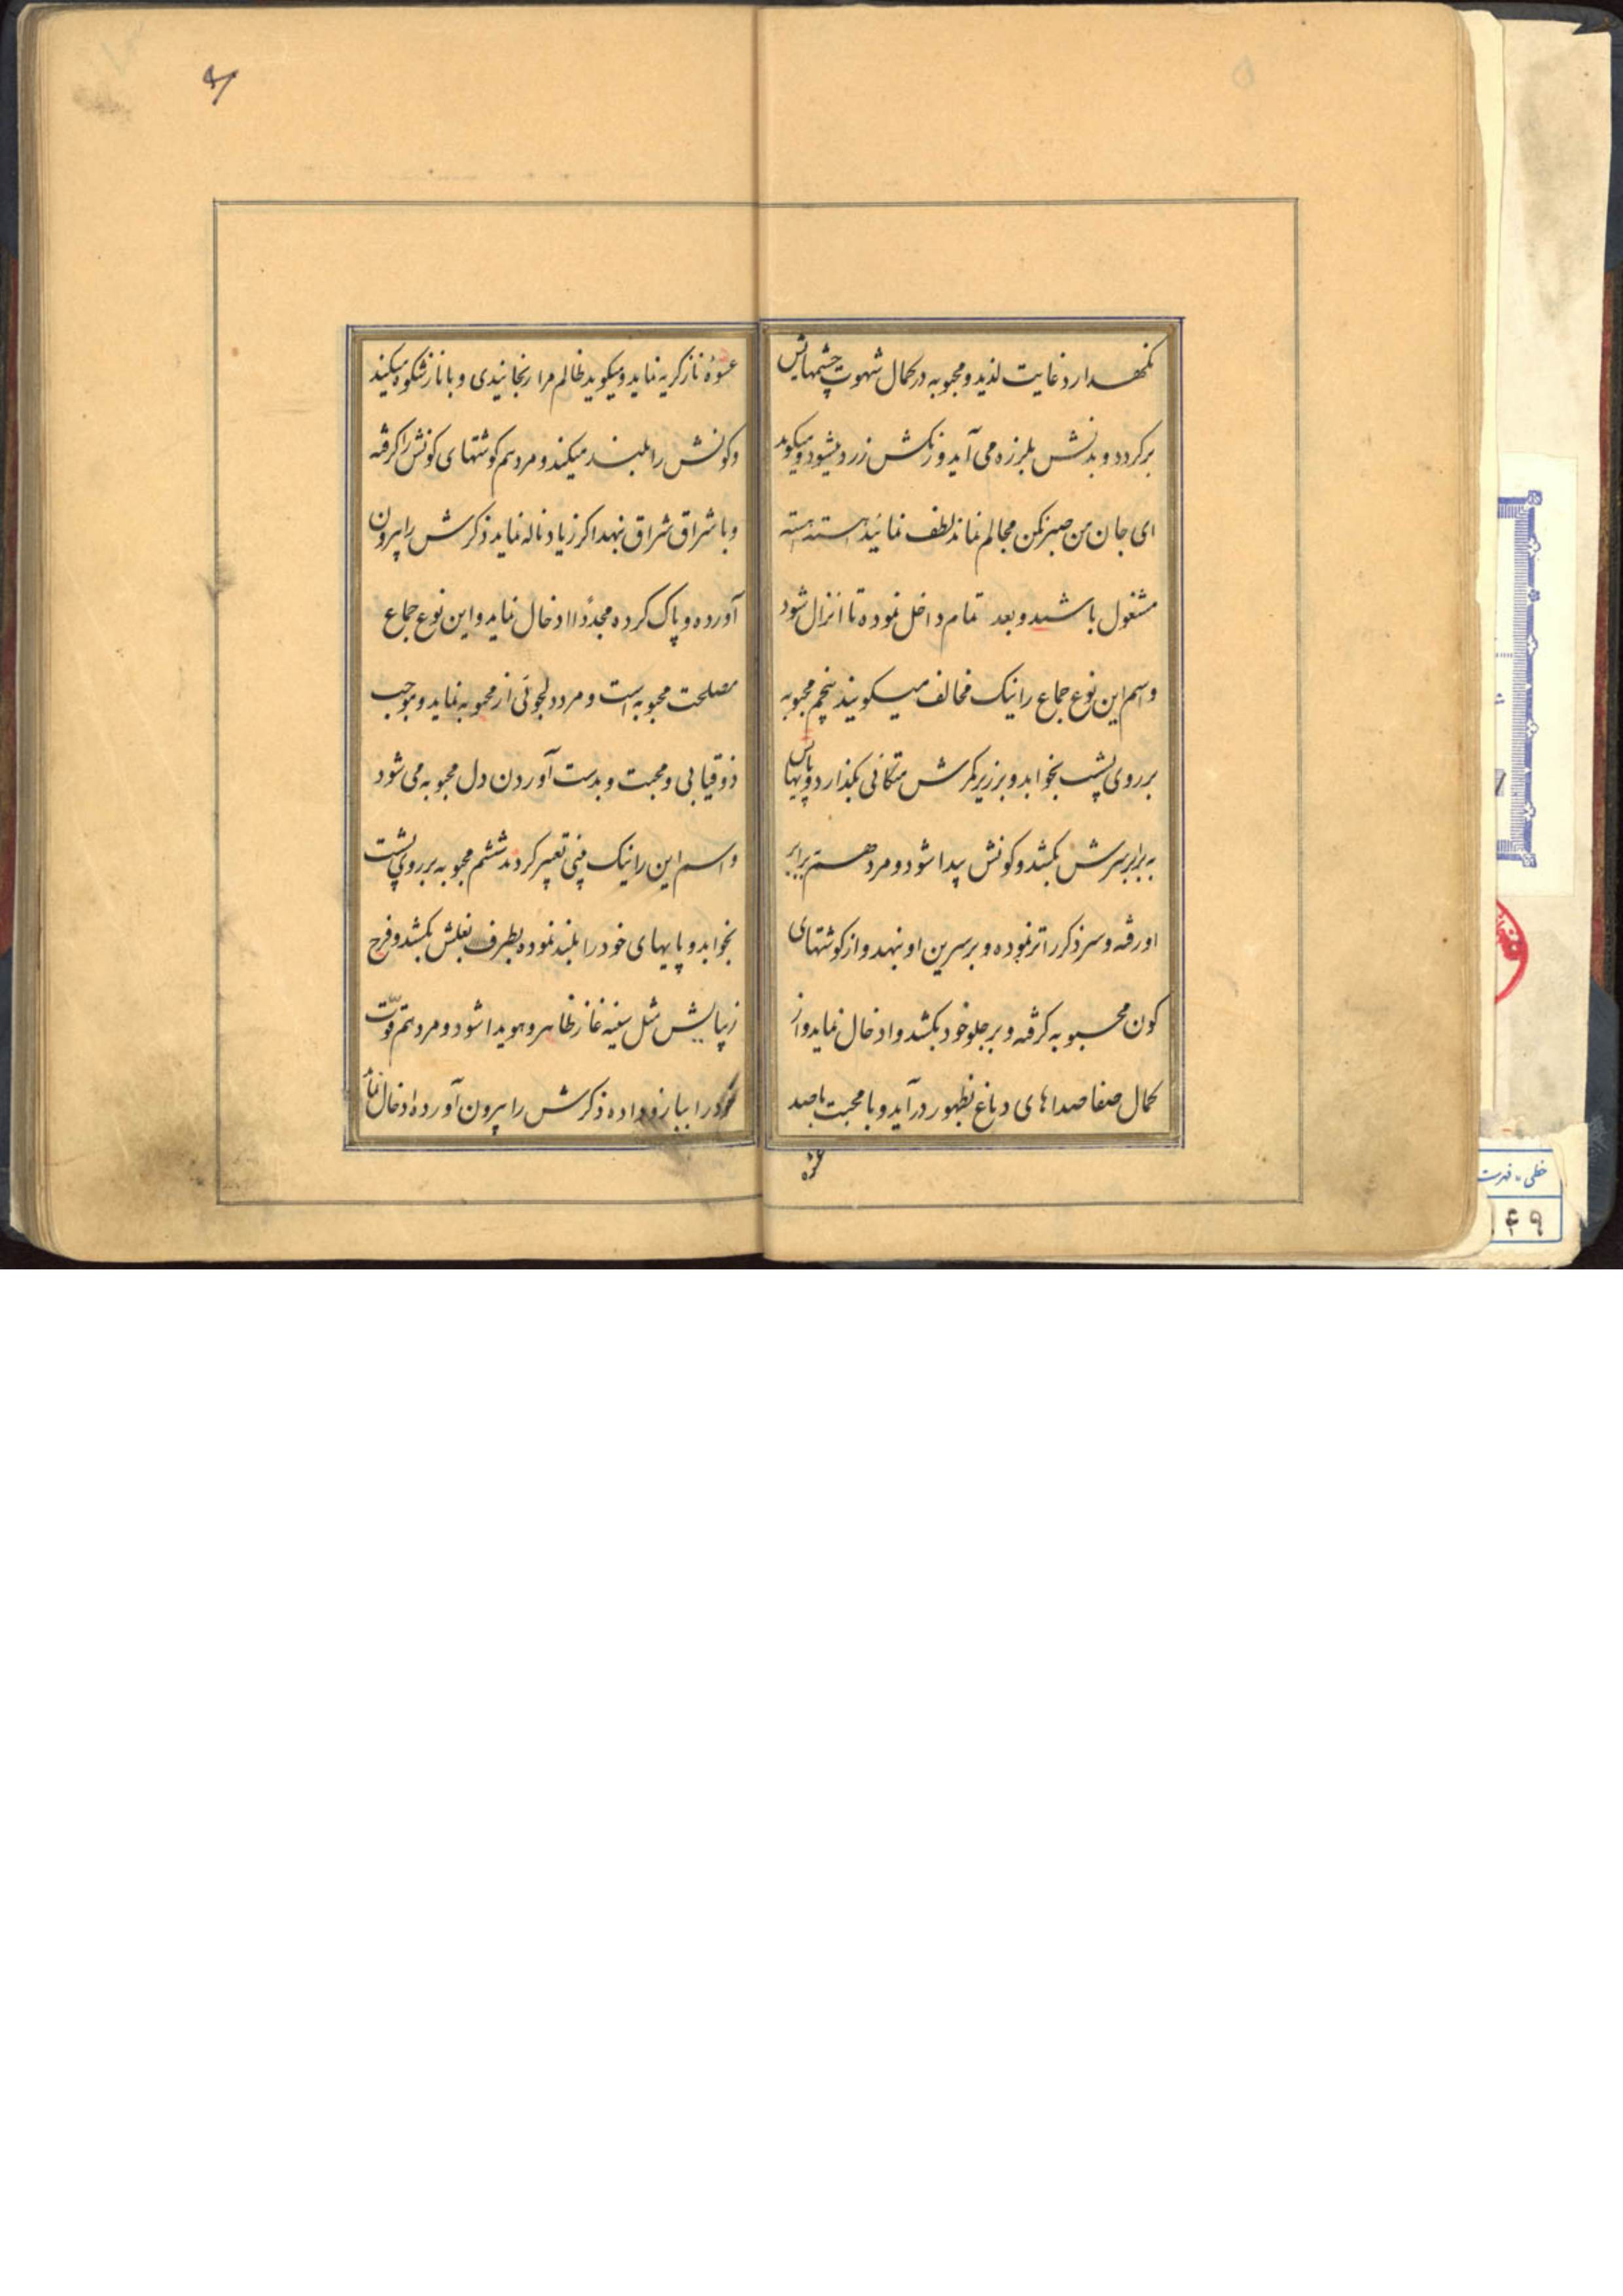 نکهدارد غایت لذیذ و محبوبه در کمال شهوت چشمهایش
برکردد و بدنش بلرزه می آید و رنکش زرد میشود و میکوید
ای جان من صبر نکن مجالم نماند لطف نمائید هسته هسته
مشغول باشید و بعد تمام داخل نموده تا انزال شود
و اسم این نوع جماع را نیک مخالف میکویند پنجم محبوبه
بر روی پشت بخوابد و بر زیر کمرش متکائی بکذارد و پایهایش
به برابر سرش بکشد و کونش پیدا شود و مرد هم برابر
او رفته و سر ذکر را تر نموده و بر سرین او نهد و از کوشتهای
کون محبوبه کرفته و بر جلو خود بکشد و ادخال نماید و از
کمال صفا صداهای دماغ بظهور در آید و با محبت با صد
عشوه
عشوه ناز کریه نماید و میکوید ظالم مرا رنجانیدی و با ناز شکوه میکند
و کونش را بلند میکند و مرد هم کوشتهای کونش را کرفته
و با شراق شراق نهد اکر زیاد ناله نماید ذکرش را بیرون
آورده و پاک کرده مجددا ادخال نماید و این نوع جماع
مصلحت محبوبه است و مرد دلجوئی از محبوبه نماید و موجب
ذوقیابی و محبت و بدست آوردن دل محبوبه می شود
و اسم این را نیک فنی تعبیر کردند ششم محبوبه بر روی پشت
بخوابد و پایهای خود را بلند نموده بطرف بغلش بکشد و فرج
زیبایش مثل سینه غاز ظاهر و هویدا شود و مرد هم قوت
خود را ببازو داده ذکرش را بیرون آورده ادخال نماید
خطی - فهرست